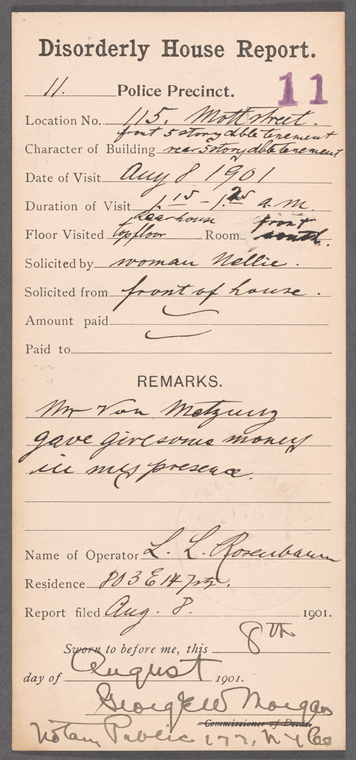 Disorderly House Report.
11. Police Precinct. 11
Location No. 115. Mott street
front 5 story dble tenement
Character of Building rear 5 story dble tenement
Date of Visit Aug 8 1901
Duration of Visit 1.15 - 1.25 a.m.
rear house front
Floor Visited top floor Room south.
Solicited by woman Nellie.
Solicited from front of house.
Amount paid
Paid to
REMARKS.
Mr Von
gave girl some money
in my presence.
Name of Operator L. L. Rosenbaum
Residence 803 E 14
Report filed Aug. 8. 1901.
Sworn to before me, this 8th
day of August 1901.
George W Morgan
Commissioner of Deeds.
Notary Public 177, N Y Co